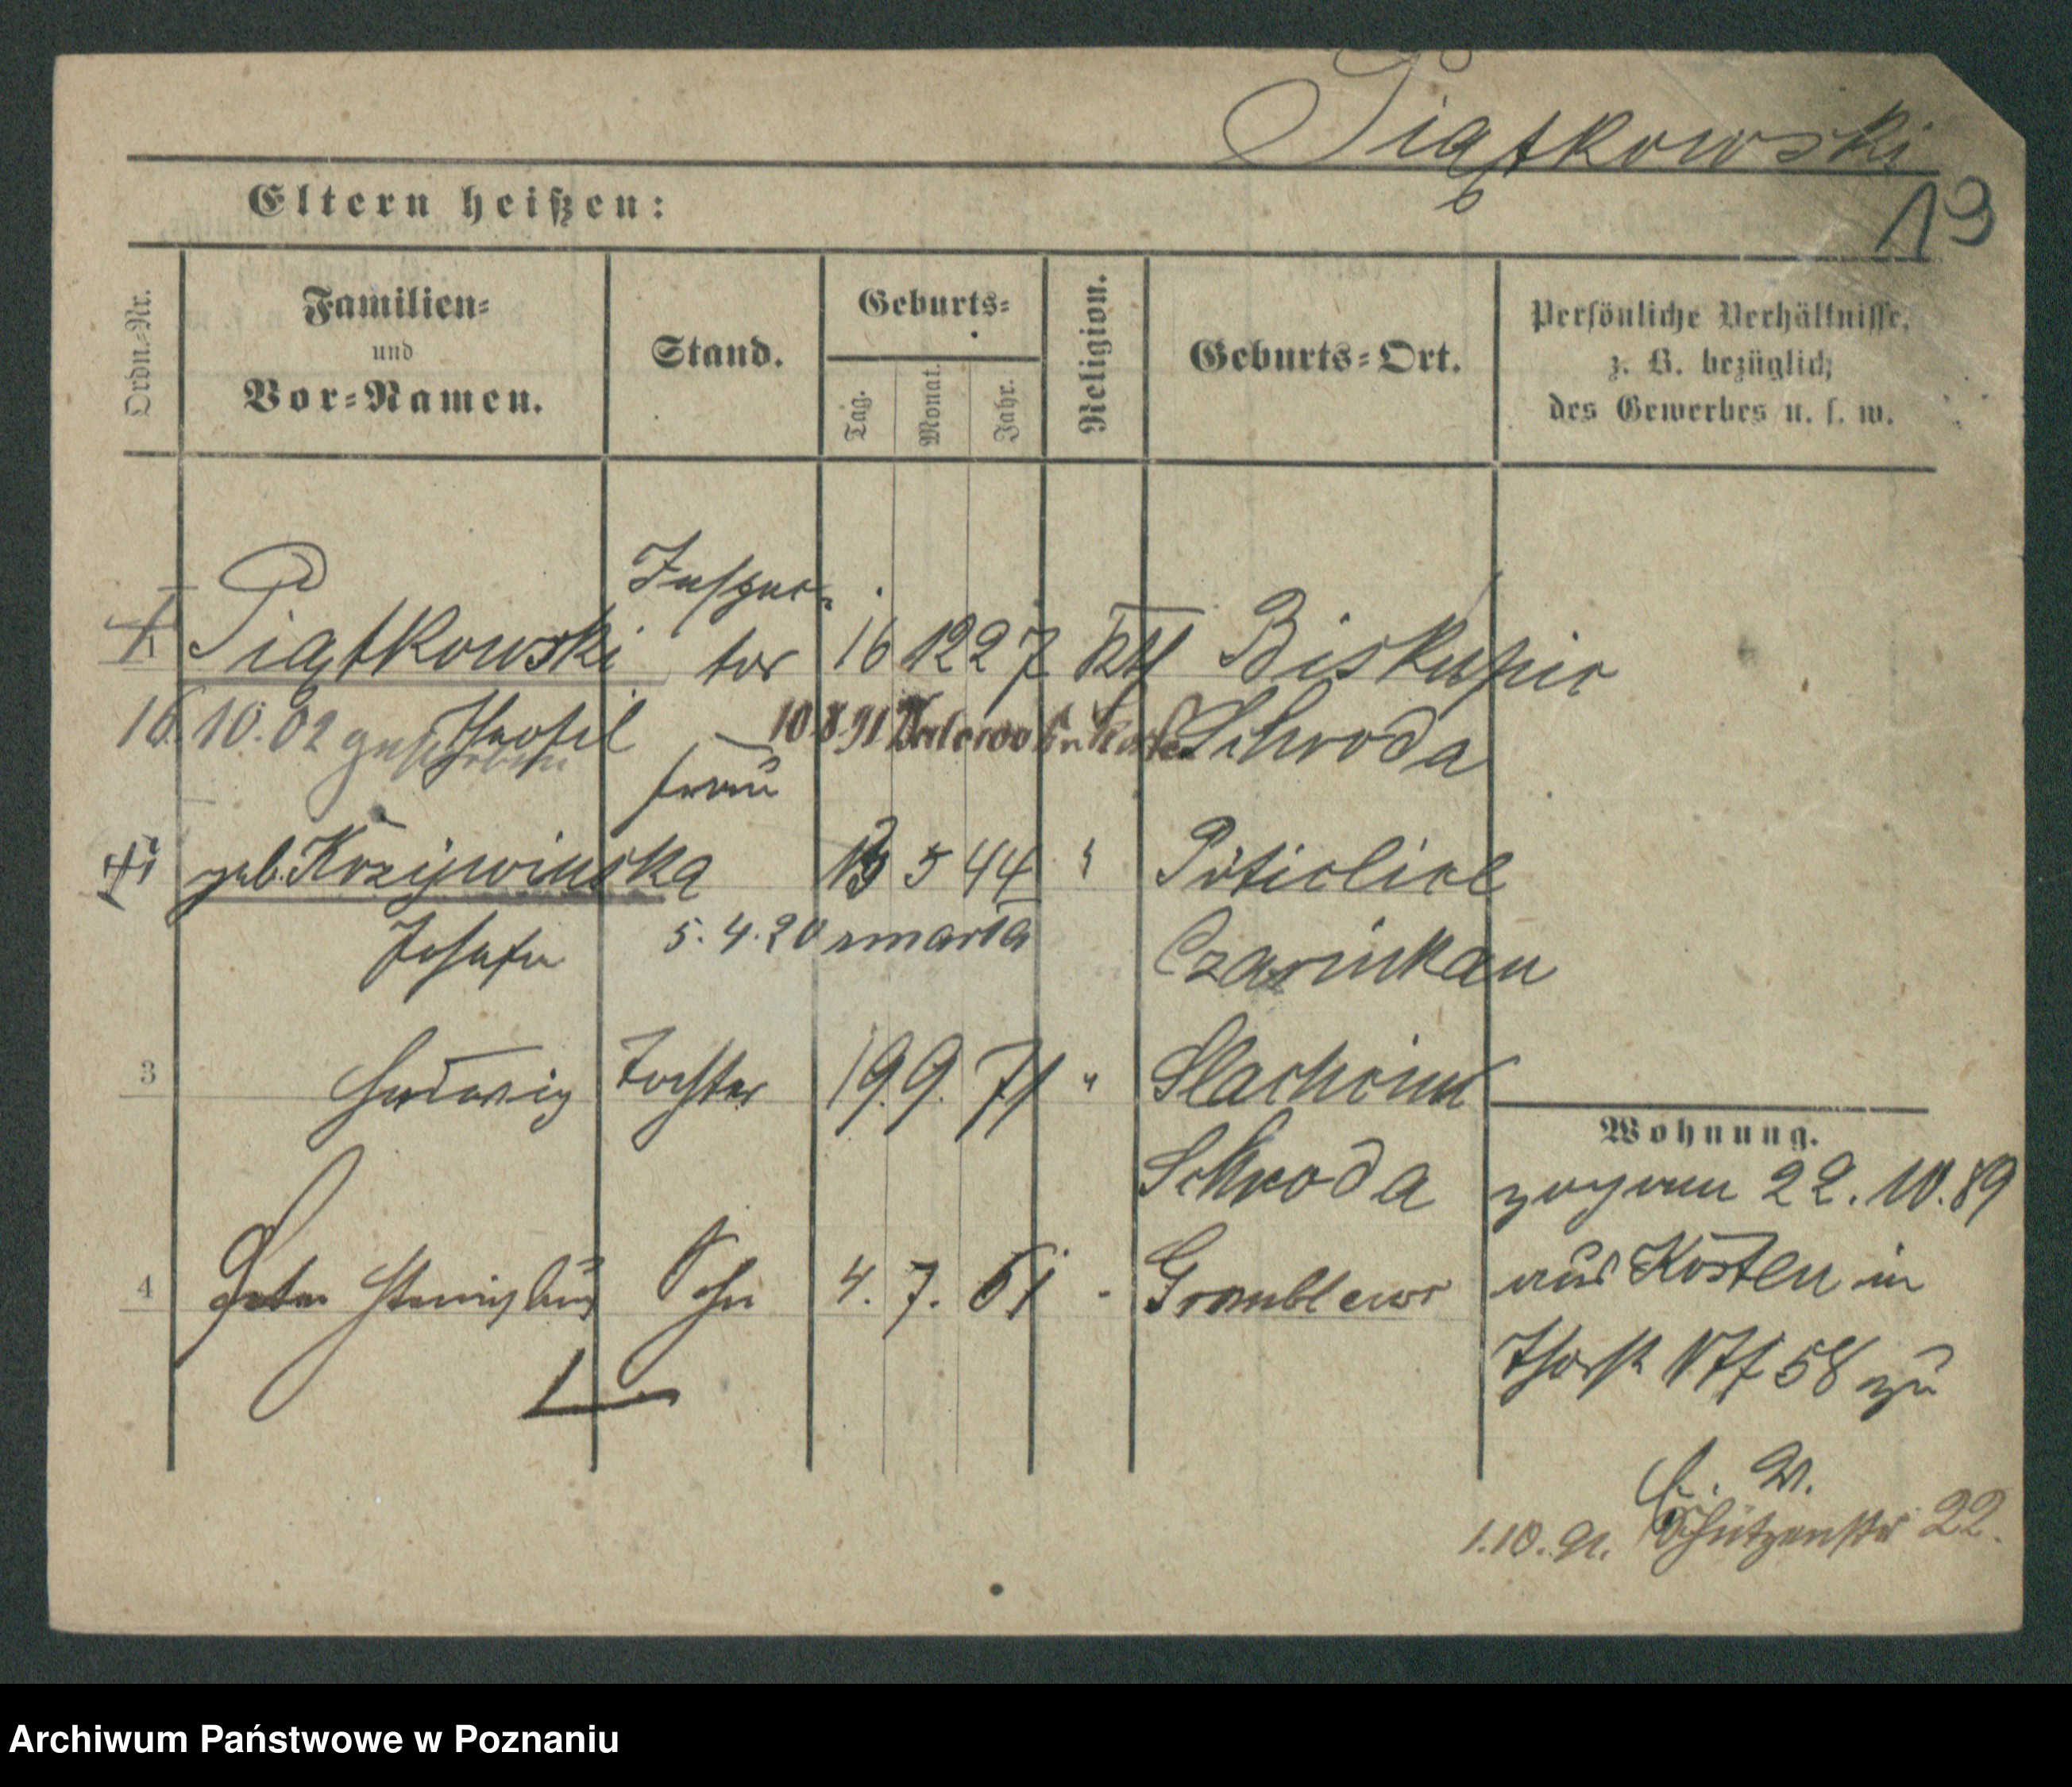 Piątkowski
19
Eltern heißen:
Ordn.-Nr.
Familien-
und
Vor-Namen.
Stand.
Geburts-
Tag.
Monat.
Jahr.
Religion.
Geburts-Ort.
Persönliche Verhältnisse,
z. B. bezüglich
des Gewerbes u. s. w.
1 Piątkowski Inspec-
tor 16 12 27 kth Biskupic
16.10.02 gestorben Theofil 10.8.91 Schroda
Frau
geb. Krzywinska 13 5 44 "
Josefa 5.4.20 zmarła Czarnikau
3 Hedwig Tochter 19. 9. 71 " Slachcin
Schroda
4 Peter Stanislaus Sohn 4. 7. 61 - Gramblewo
Wohnung.
zog am 22.10.89
aus Kosten in
58 zu
1.10.91. Schützenstr 22.
Archiwum Państwowe w Poznaniu